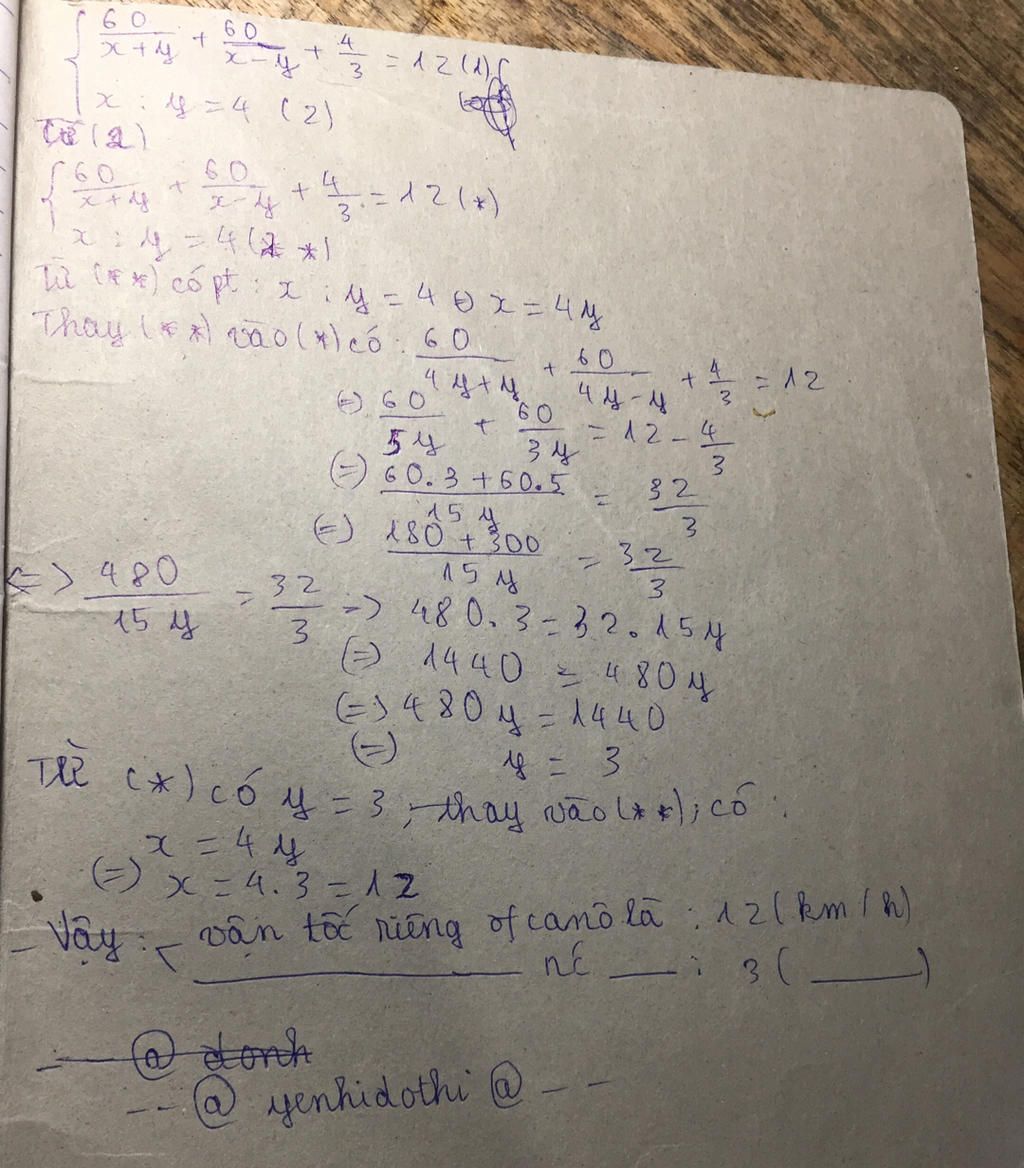 60/(x+y) + 60/(x-y) + 4/3 = 12 (1)
x : y = 4 (2)
Từ (2)
60/(x+y) + 60/(x-y) + 4/3 = 12 (*)
x : y = 4 (**)
Từ (**) có pt : x : y = 4 ⇔ x = 4y
Thay (**) vào (*) có : 60/(4y+y) + 60/(4y-y) + 4/3 = 12
(=) 60/5y + 60/3y = 12 - 4/3
(=) (60.3 + 60.5)/15y = 32/3
(=) (180 + 300)/15y = 32/3
<=> 480/15y = 32/3 => 480.3 = 32.15y
(=) 1440 = 480y
(=) 480y = 1440
(=) y = 3
Từ (*) có y = 3, thay vào (**), có :
x = 4y
(=) x = 4.3 = 12
- Vậy : - vận tốc riêng of canô là : 12 (km/h)
nc : 3 ( )
-- @ yenhidothi @ --